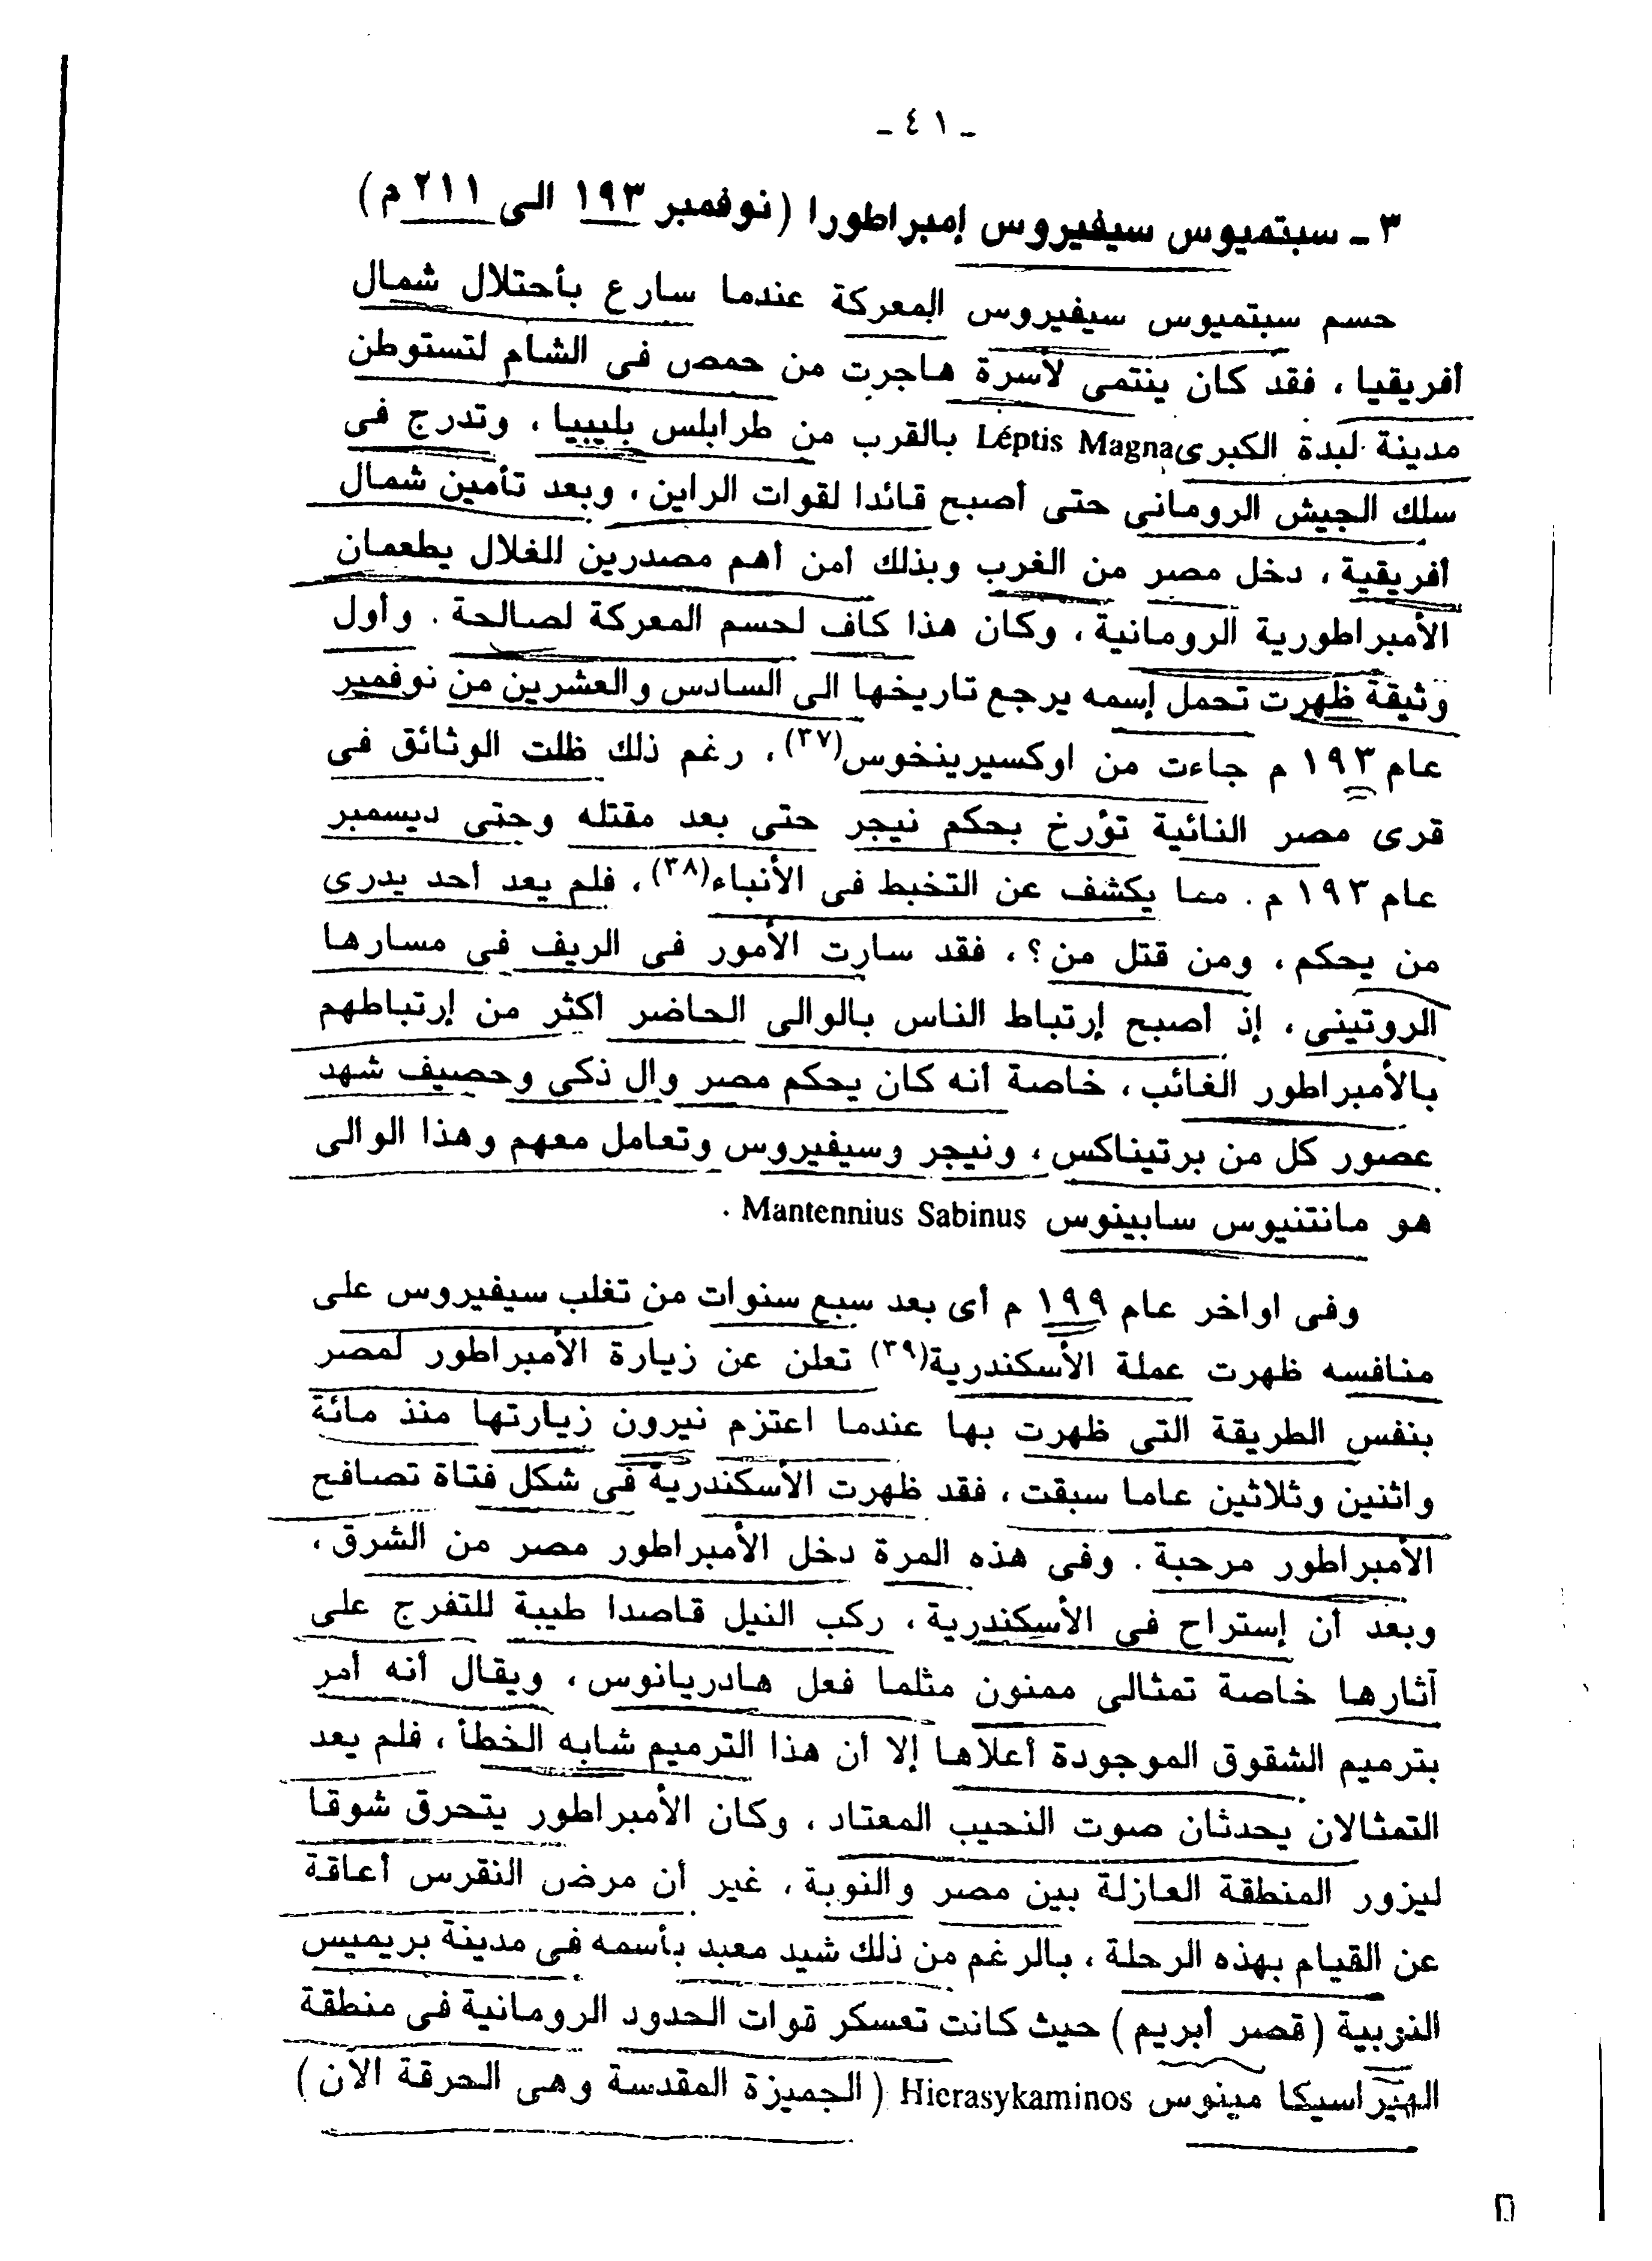 ـ ٤١ ـ
٣ ـ سبتميوس سيفيروس إمبراطورا (نوفمبر ١٩٣ الى ٢١١ م)
حسم سبتميوس سيفيروس المعركة عندما سارع بأحتلال شمال
أفريقيا ، فقد كان ينتمى لأسرة هاجرت من حمص فى الشام لتستوطن
مدينة لبدة الكبرى Léptis Magna بالقرب من طرابلس بليبيا ، وتدرج فى
سلك الجيش الرومانى حتى أصبح قائدا لقوات الراين ، وبعد تأمين شمال
أفريقية ، دخل مصر من الغرب وبذلك أمن أهم مصدرين للغلال يطعمان
الأمبراطورية الرومانية ، وكان هذا كاف لحسم المعركة لصالحة . وأول
وثيقة ظهرت تحمل إسمه يرجع تاريخها الى السادس والعشرين من نوفمبر
عام ١٩٣ م جاءت من اوكسيرينخوس(٣٧) ، رغم ذلك ظلت الوثائق فى
قرى مصر النائية تؤرخ بحكم نيجر حتى بعد مقتله وحتى ديسمبر
عام ١٩٣ م . مما يكشف عن التخبط فى الأنباء(٣٨) ، فلم يعد أحد يدرى
من يحكم ، ومن قتل من ؟ ، فقد سارت الأمور فى الريف فى مسارها
الروتينى ، إذ أصبح إرتباط الناس بالوالى الحاضر أكثر من إرتباطهم
بالأمبراطور الغائب ، خاصة أنه كان يحكم مصر وال ذكى وحصيف شهد
عصور كل من برتيناكس ، ونيجر وسيفيروس وتعامل معهم وهذا الوالى
هو مانتنيوس سابينوس Mantennius Sabinus .
وفى اواخر عام ١٩٩ م أى بعد سبع سنوات من تغلب سيفيروس على
منافسه ظهرت عملة الأسكندرية(٣٩) تعلن عن زيارة الأمبراطور لمصر
بنفس الطريقة التى ظهرت بها عندما اعتزم نيرون زيارتها منذ مائة
واثنين وثلاثين عاما سبقت ، فقد ظهرت الأسكندرية فى شكل فتاة تصافح
الأمبراطور مرحبة . وفى هذه المرة دخل الأمبراطور مصر من الشرق ،
وبعد أن إستراح فى الأسكندرية ، ركب النيل قاصدا طيبة للتفرج على
آثارها خاصة تمثالى ممنون مثلما فعل هادريانوس ، ويقال أنه أمر
بترميم الشقوق الموجودة أعلاها إلا أن هذا الترميم شابه الخطأ ، فلم يعد
التمثالان يحدثان صوت النحيب المعتاد ، وكان الأمبراطور يتحرق شوقا
ليزور المنطقة العازلة بين مصر والنوبة ، غير أن مرض النقرس أعاقة
عن القيام بهذه الرحلة ، بالرغم من ذلك شيد معبد بأسمه فى مدينة بريميس
النوبية (قصر أبريم) حيث كانت تعسكر قوات الحدود الرومانية فى منطقة
الهيراسيكا مينوس Hierasykaminos (الجميزة المقدسة وهى الحرقة الآن)